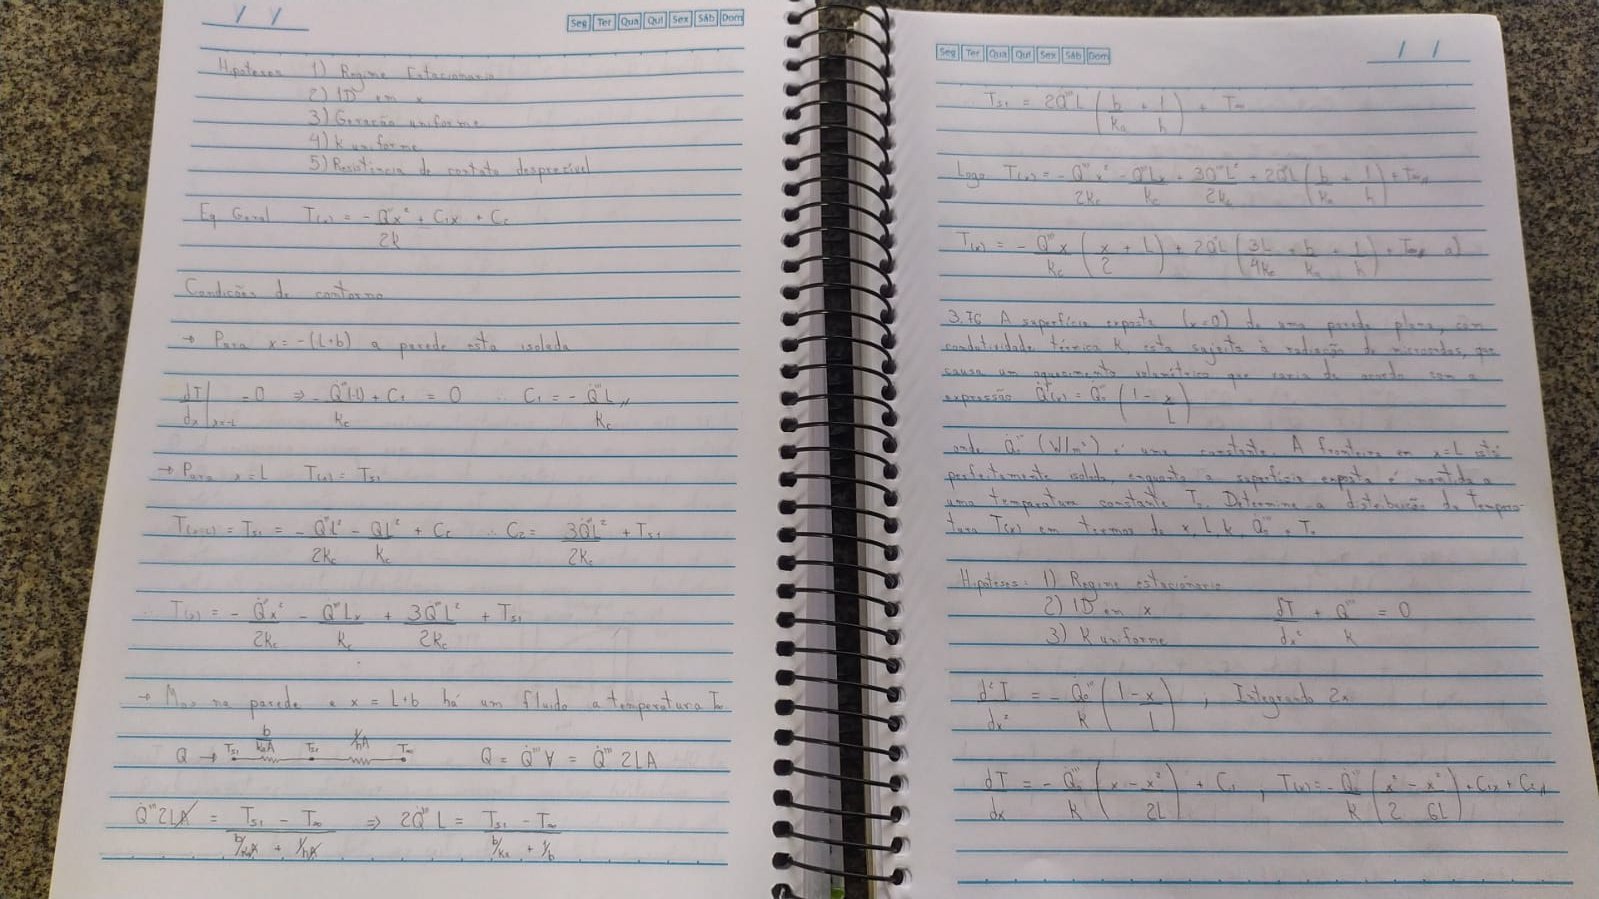 / /
Seg Ter Qua Qui Sex Sáb Dom
Hipoteses 1) Regime Estacionario
2) 1D em x
3) Geração uniforme
4) k uniforme
5) Resistência de contato desprezível
Eq Geral T(x) = - Q̇'''x²/2k + C₁x + C₂
Condições de contorno
→ Para x = -(L+b) a parede esta isolada
dT/dx|x=-L = 0 ⇒ - Q̇'''(-L)/kc + C₁ = 0 ∴ C₁ = - Q̇'''L/kc //
→ Para x = L T(x) = Ts1
T(x=L) = Ts1 = - Q̇'''L²/2kc - Q̇L²/kc + C₂ ∴ C₂ = 3Q̇'''L²/2kc + Ts1
∴ T(x) = - Q̇'''x²/2kc - Q̇'''Lx/kc + 3Q̇'''L²/2kc + Ts1
→ Mas na parede e x = L+b há um fluido a temperatura T∞
Q → Ts1 b/kaA Ts2 1/hA T∞ Q = Q̇'''V = Q̇''' 2LA
Q̇'''2LA = (Ts1 - T∞)/(b/kaA + 1/hA) ⇒ 2Q̇'''L = (Ts1 - T∞)/(b/ka + 1/h)
Seg Ter Qua Qui Sex Sáb Dom
/ /
Ts1 = 2Q̇'''L (b/ka + 1/h) + T∞
Logo T(x) = - Q̇'''x²/2kc - Q̇'''Lx/kc + 3Q̇'''L²/2kc + 2Q̇'''L (b/ka + 1/h) + T∞ //
T(x) = - Q̇'''x/kc (x/2 + L) + 2Q̇'''L (3L/4kc + b/ka + 1/h) + T∞ // a)
3.76 A superfície exposta (x=0) de uma parede plana, com
condutividade térmica k, esta sujeita à radiação de microondas, que
causa um aquecimento volumétrico que varia de acordo com a
expressão Q̇'''(x) = Q̇₀''' (1 - x/L)
onde Q̇₀''' (W/m³) é uma constante. A fronteira em x=L está
perfeitamente isolada, enquanto a superfície exposta é mantida a
uma temperatura constante T₀. Determine a distribuição de tempera-
tura T(x) em termos de x, L, k, Q̇₀''' e T₀
Hipoteses: 1) Regime estacionario
2) 1D em x dT/dx² + Q̇'''/k = 0
3) K uniforme
d²T/dx² = - Q̇₀'''/k (1 - x/L) ; Integrando 2x
dT/dx = - Q̇₀'''/k (x - x²/2L) + C₁ ; T(x) = - Q̇₀'''/k (x²/2 - x³/6L) + C₁x + C₂ //